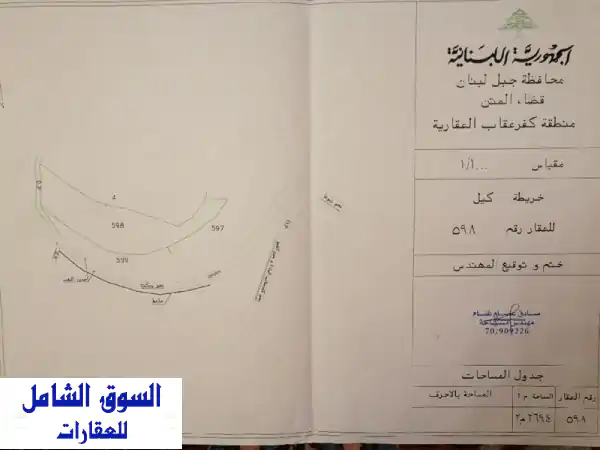 الجمهوريّة اللبنانيّة
محافظة جبل لبنان
قضاء المتن
منطقة كفرعقاب العقارية
مقياس ١/١٠٠٠
خريطة كيل
للعقار رقم ٥٩٨
ختم و توقيع المهندس
70/909226
جدول المساحات
رقم العقار
المساحة م٢
المساحة بالاحرف
٥٩٨
٢٦٩٤ م٢
4
598
597
599
السوق الشامل
للعقارات